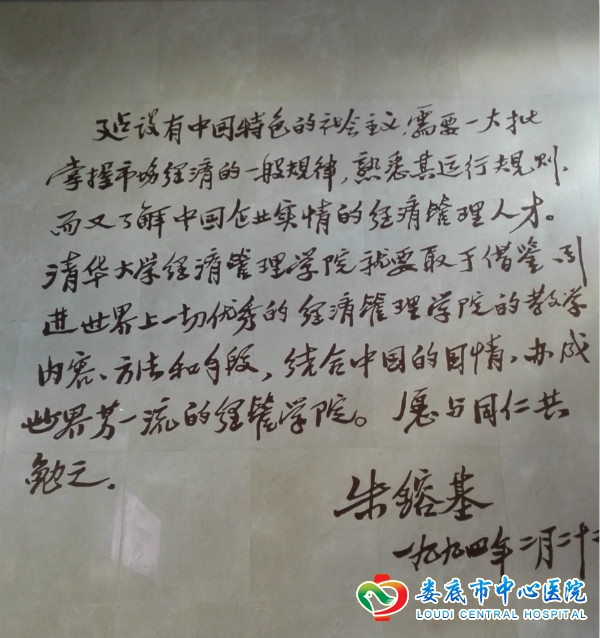 建设有中国特色的社会主义,需要一大批
掌握市场经济的一般规律,熟悉其运行规则,
而又了解中国企业实情的经济管理人才。
清华大学经济管理学院就要敢于借鉴、引
进世界上一切优秀的经济管理学院的教学
内容、方法和手段,结合中国的国情,办成
世界第一流的经管学院。愿与同仁共
勉之。
朱镕基
一九九四年二月二十二
娄底市中心医院
LOUDI CENTRAL HOSPITAL